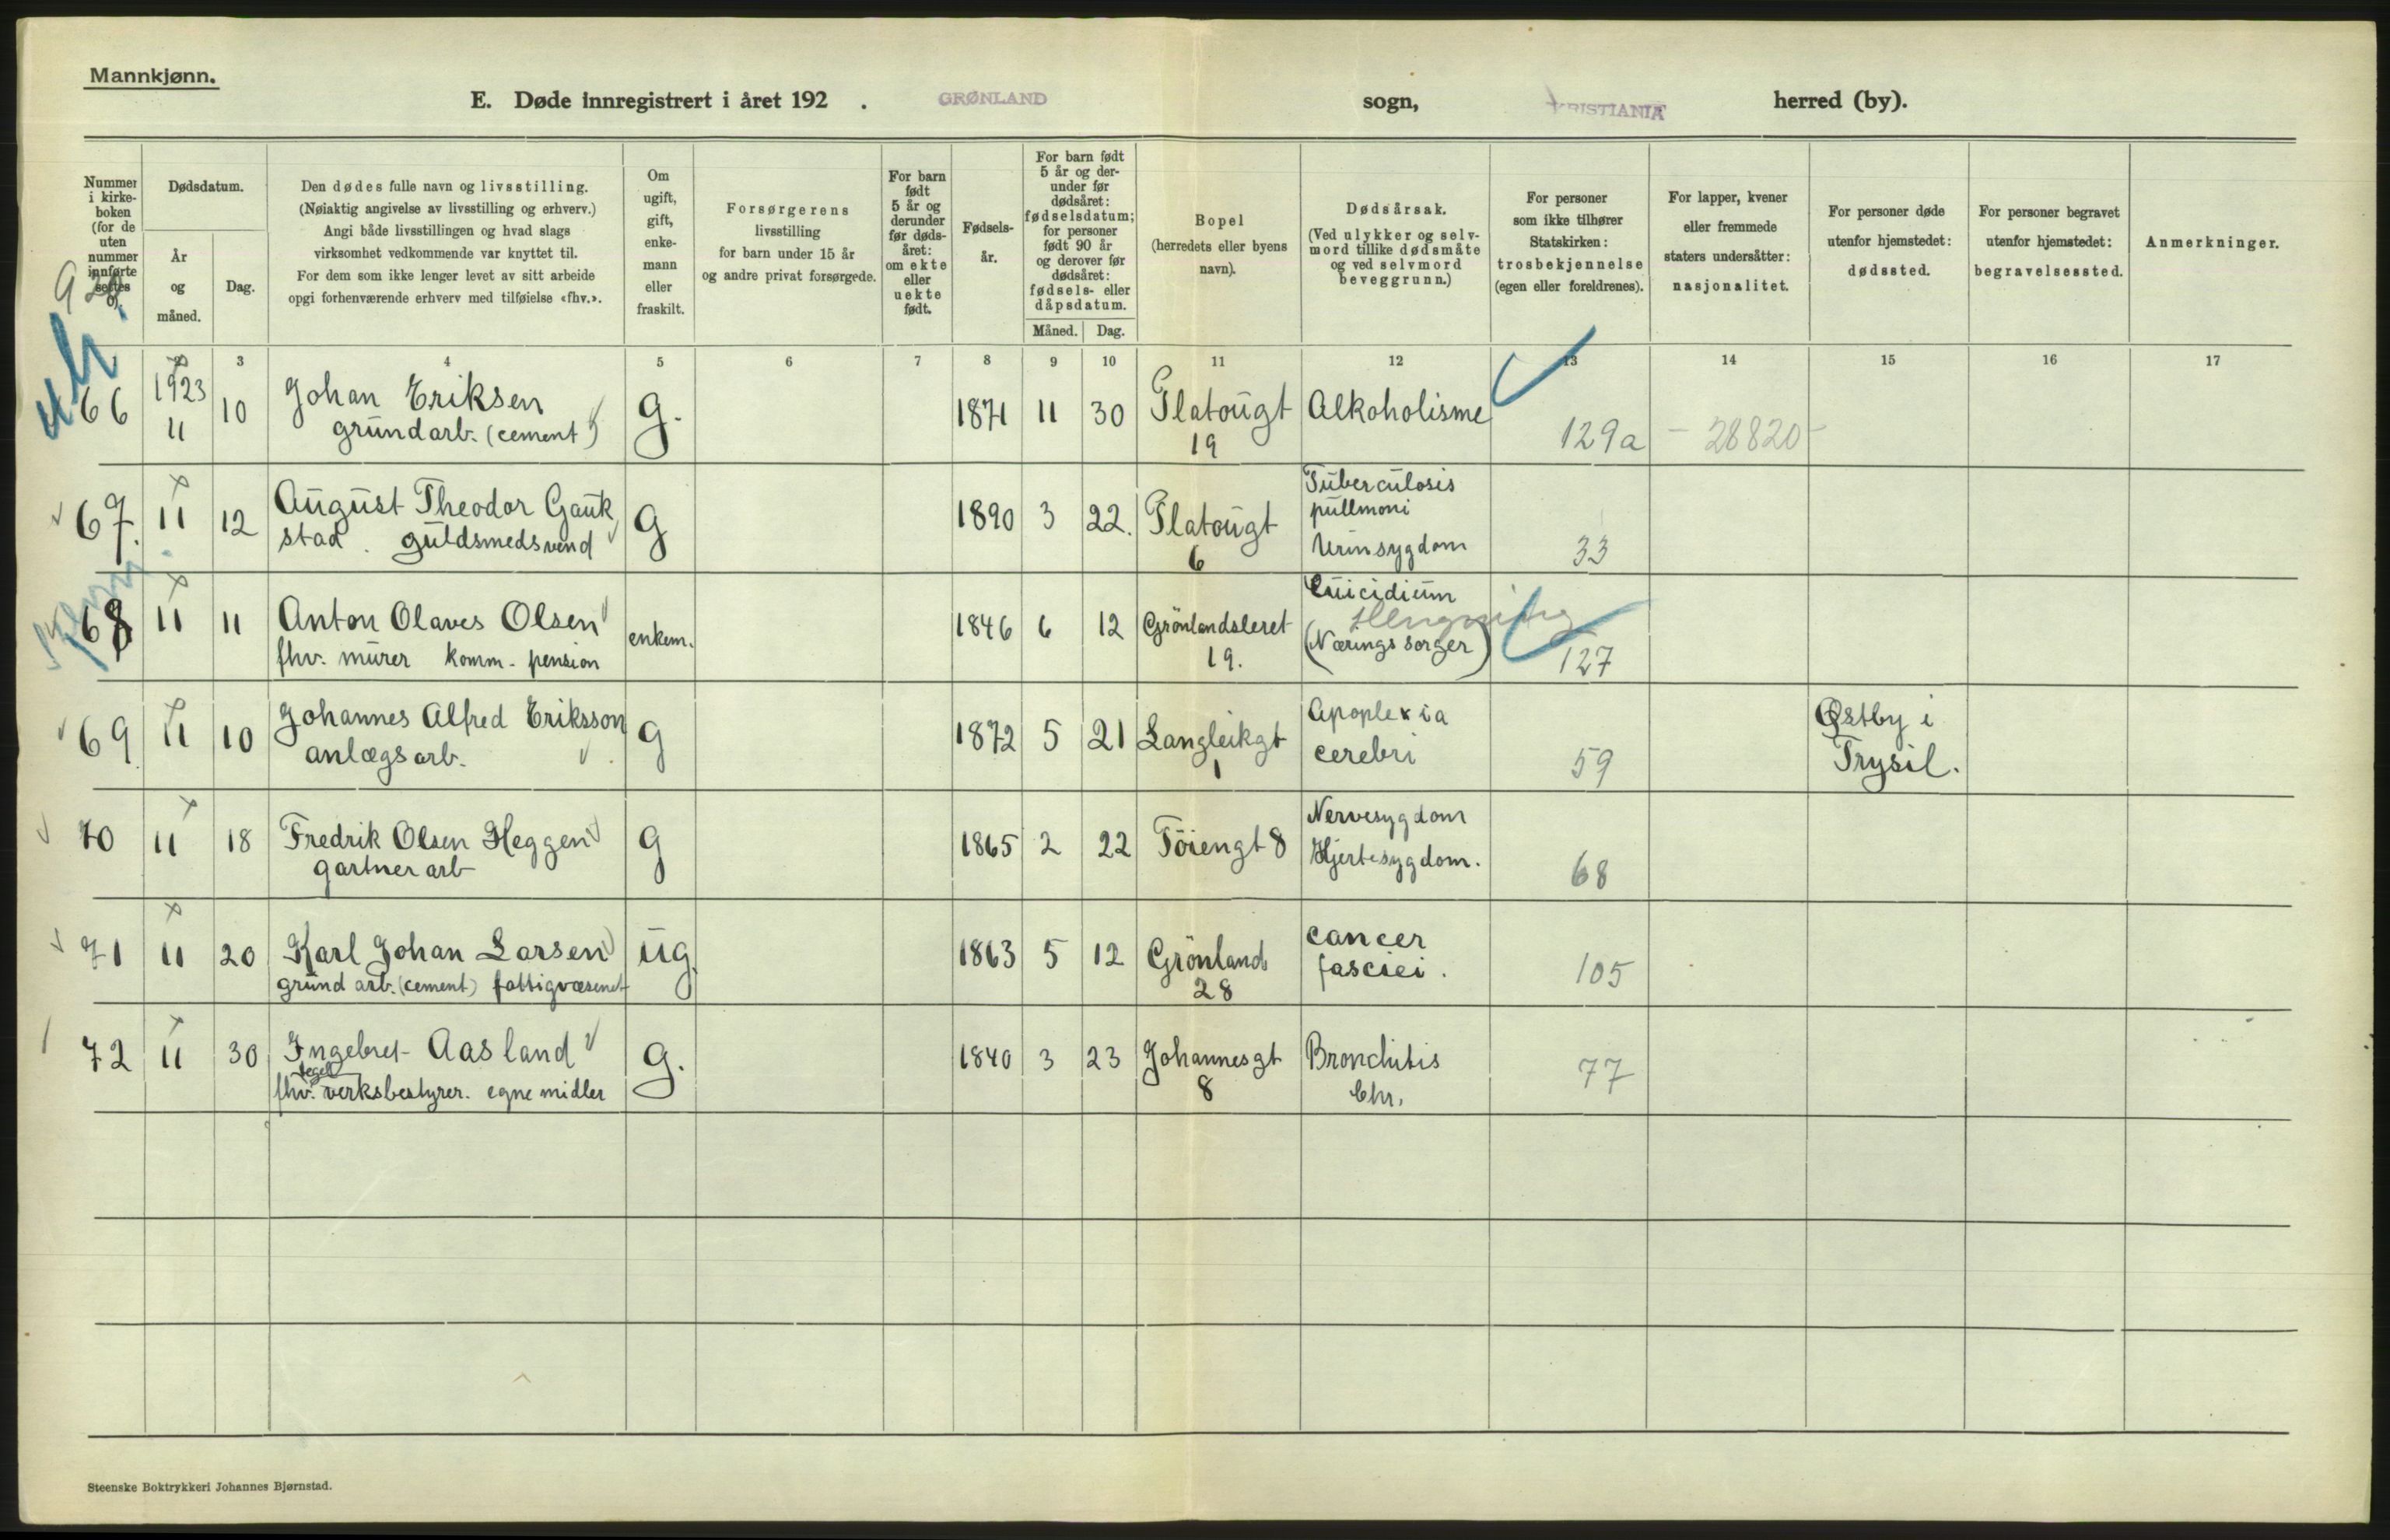 Mannkjønn.
E. Døde innregistrert i året 192 . GRØNLAND sogn, KRISTIANIA herred (by).
Nummer i kirke-boken (for de uten nummer innførte settes 0).
Dødsdatum.
År og måned.
Dag.
Den dødes fulle navn og livsstilling.
(Nøiaktig angivelse av livsstilling og erhverv.)
Angi både livsstillingen og hvad slags
virksomhet vedkommende var knyttet til.
For dem som ikke lenger levet av sitt arbeide
opgi forhenværende erhverv med tilføielse «fhv.».
Om ugift, gift, enke-mann eller fraskilt.
Forsørgerens
livsstilling
for barn under 15 år
og andre privat forsørgede.
For barn født 5 år og derunder før døds-året: om ekte eller uekte født.
Fødsels-år.
For barn født 5 år og der-under før dødsåret: fødselsdatum; for personer født 90 år og derover før dødsåret: fødsels- eller dåpsdatum.
Måned. Dag.
Bopel
(herredets eller byens
navn).
Dødsårsak.
(Ved ulykker og selv-
mord tillike dødsmåte
og ved selvmord
beveggrunn.)
For personer
som ikke tilhører
Statskirken:
trosbekjennelse
(egen eller foreldrenes).
For lapper, kvener
eller fremmede
staters undersåtter:
nasjonalitet.
For personer døde
utenfor hjemstedet:
dødssted.
For personer begravet
utenfor hjemstedet:
begravelsessted.
Anmerkninger.
1 2 3 4 5 6 7 8 9 10 11 12 13 14 15 16 17
66 1923 11 10 Johan Eriksen g. 1871 11 30 Platougt Alkoholisme
grundarb. (cement) 19 129a - 28820 -
67. 11 12 August Theodor Gauk g 1890 3 22. Platougt Tuberculosis
stad. guldsmedsvend 6 pullmoni
Urinsygdom 33
68 11 11 Anton Olaves Olsen enkem. 1846 6 12 Grönlandsleret Suicidium
Hengning
fhv. murer komm. pension 19. (Nærings sorger) 127
69 11 10 Johannes Alfred Eriksson g 1872 5 21 Langleikgt Apoplexia Østby i
anlægsarb. 1 cerebri 59 Trysil.
70 11 18 Fredrik Olsen Heggen g 1865 2 22 Töiengt 8 Nervesygdom
gartner arb Hjertesygdom. 68
71 11 20 Karl Johan Larsen ug. 1863 5 12 Grönland cancer
grund arb. (cement) fattigvæsenet 28 fasciei. 105
72 11 30 Ingebret Aasland g. 1840 3 23 Johannesgt Bronchitis
fhv. teglverksbestyrer. egne midler 8 Chr. 77
Steenske Boktrykkeri Johannes Bjørnstad.